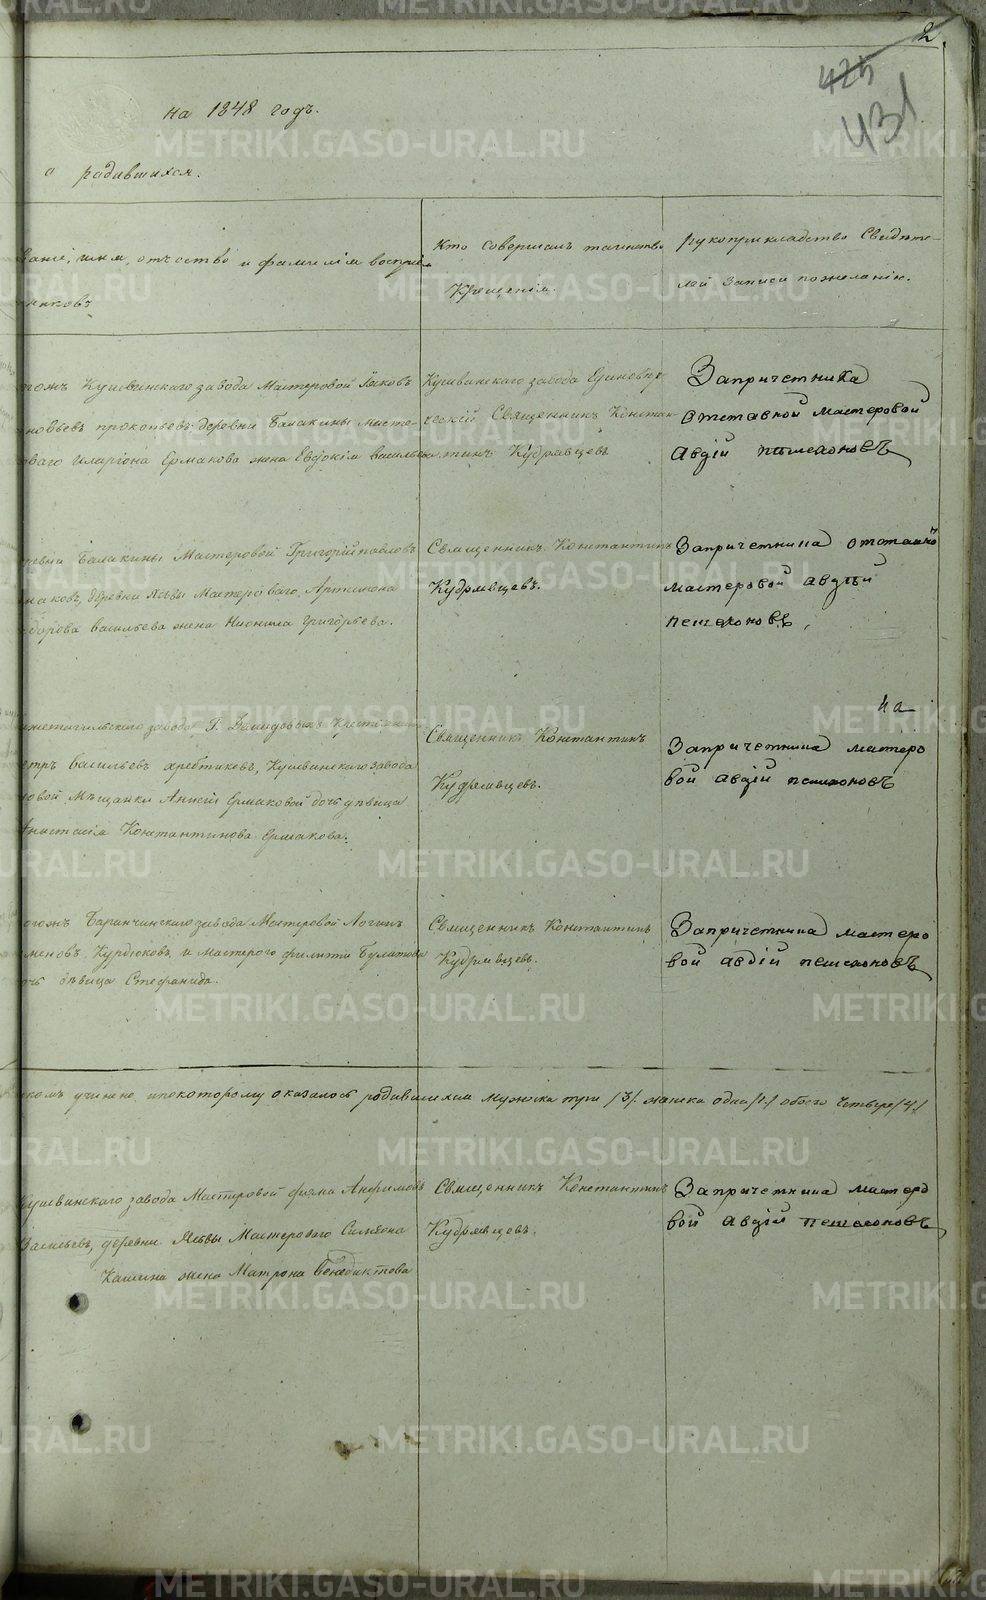 2.
425
431
на 1848 годъ.
о родившихся.
ваніе, имя, отчество и фамилія воспріем
никовъ
Кто совершалъ таинство
Крещенія.
рукоприкладство Свидете-
лей Записи по желанію.
тожъ Кушвинскаго завода Мастеровой Іаковъ
новьевъ прокопьевъ деревни Балакины масте-
роваго Иларіона Ермакова жена Евдокія васильева
Кушвинскаго завода Единовѣр
ческій Священникъ Констан
тинъ Кудрявцевъ
Запричетника
отставной мастеровой
Авдій пешехоновъ
ревни Балакины Мастеровой Григорій павловъ
маковъ, деревни Лѣвы Мастероваго Артемона
дорова васильева жена Нионила григорьева.
Священникъ Константинъ
Кудрявцевъ.
Запричетника отставной
мастеровой авдѣй
пешехоновъ,
жнетагильскаго завода Г. Демидовыхъ Крестьянинъ
етръ васильевъ хребтиковъ, Кушвинскаго завода
довой Мѣщанки Аннсіи Ермаковой дочь дѣвица
Анастасія Константинова Ермакова.
Священникъ Константинъ
Кудрявцевъ.
на
Запричетника мастеро
вой авдій пешехоновъ
тожъ Баранчинскаго завода Мастеровой Логинъ
меновъ Курдюковъ, и мастерого филипа Булатова
чь дѣвица Стефанида.
Священникъ Константинъ
Кудрявцевъ.
Запричетника мастеро
вой авдій пешехоновъ
комъ учинено, ипокоторому оказалось родившихся мужска три /3/. женска одна /1./ обоего четыре /4./
Кушвинскаго завода Мастеровой фирка Анфимовъ
Васильевъ, деревни Лѣвы Мастероваго Симеона
Кашина жена Матрона Бенедиктова
Священникъ Константинъ
Кудрявцевъ.
Запричетника мастеро
вой авдій пешехоновъ
METRIKI.GASO-URAL.RU